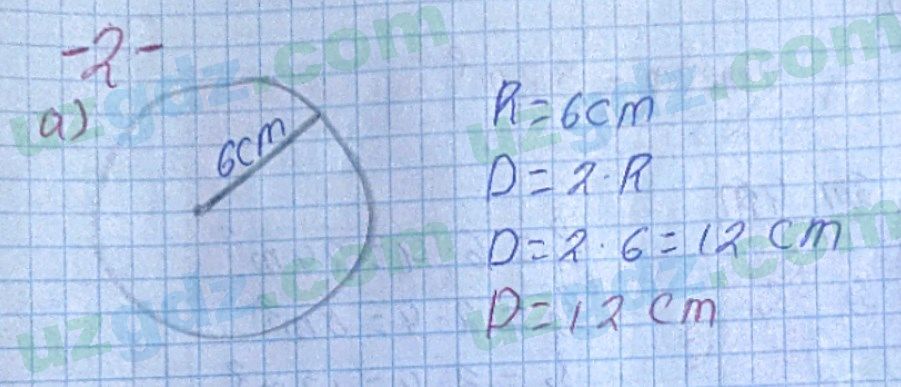 -2-
a)
6cm
R=6cm
D=2·R
D=2·6=12 cm
D=12 cm
uzgdz.com
uzgdz.com
uzgdz.com
uzgdz.com